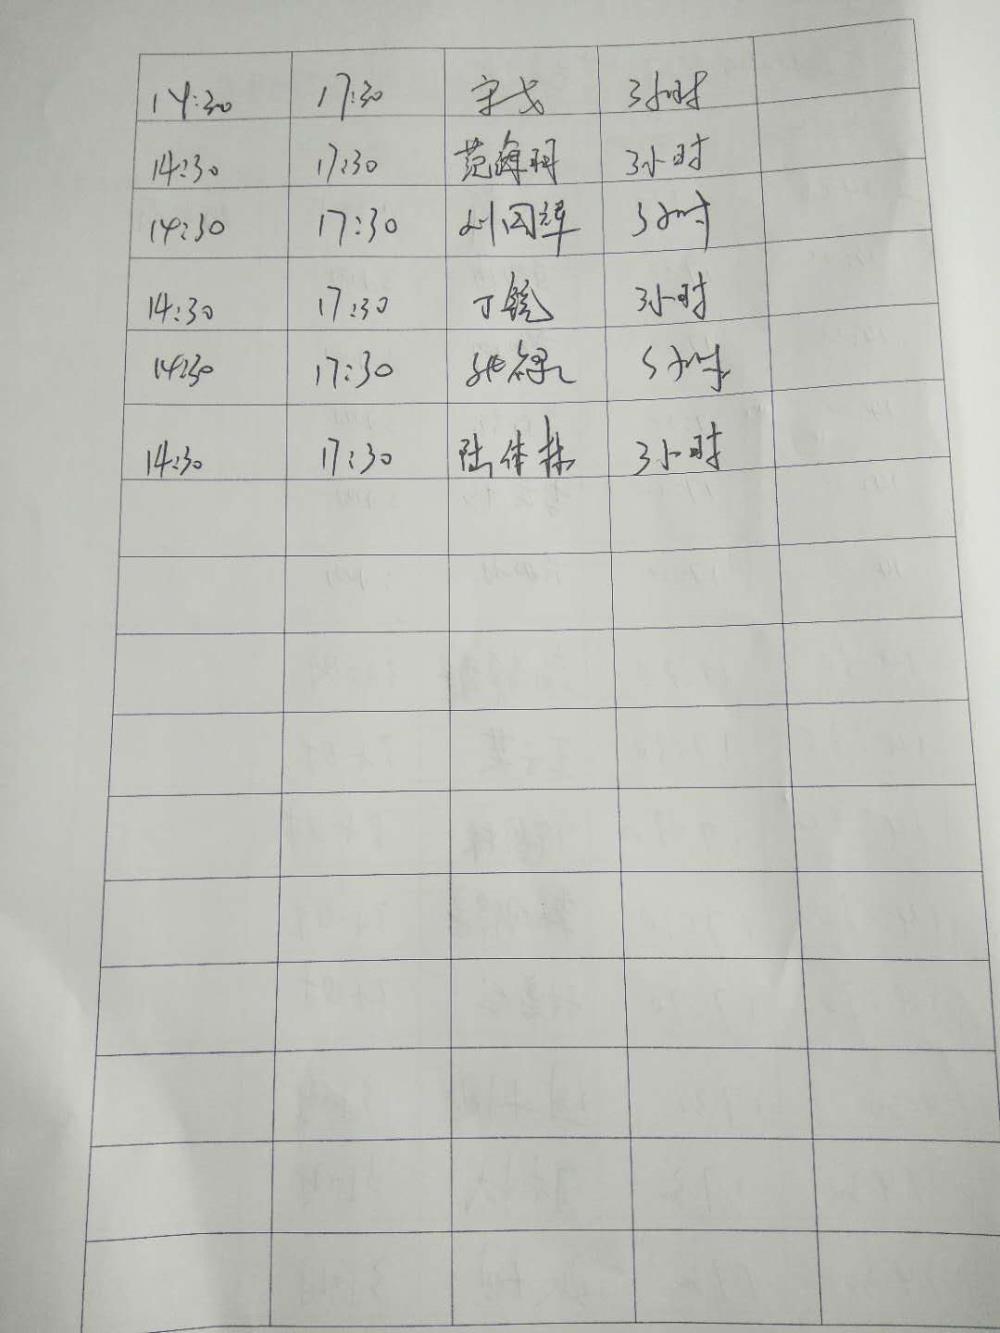 14:30 17:30 宋戈 3小时
14:30 17:30 范海明 3小时
14:30 17:30 刘国辉 3小时
14:30 17:30 丁锐 3小时
14:30 17:30 3小时
14:30 17:30 陆体林 3小时